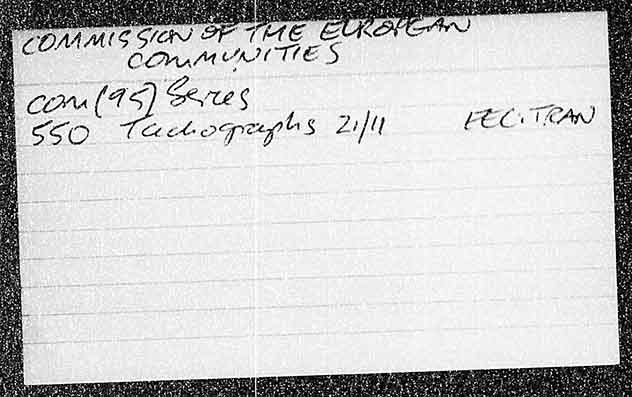 COMMISSION OF THE EUROPEAN
COMMUNITIES
COM(95) Series
550 Tachographs 21/11 EEC:TRAN